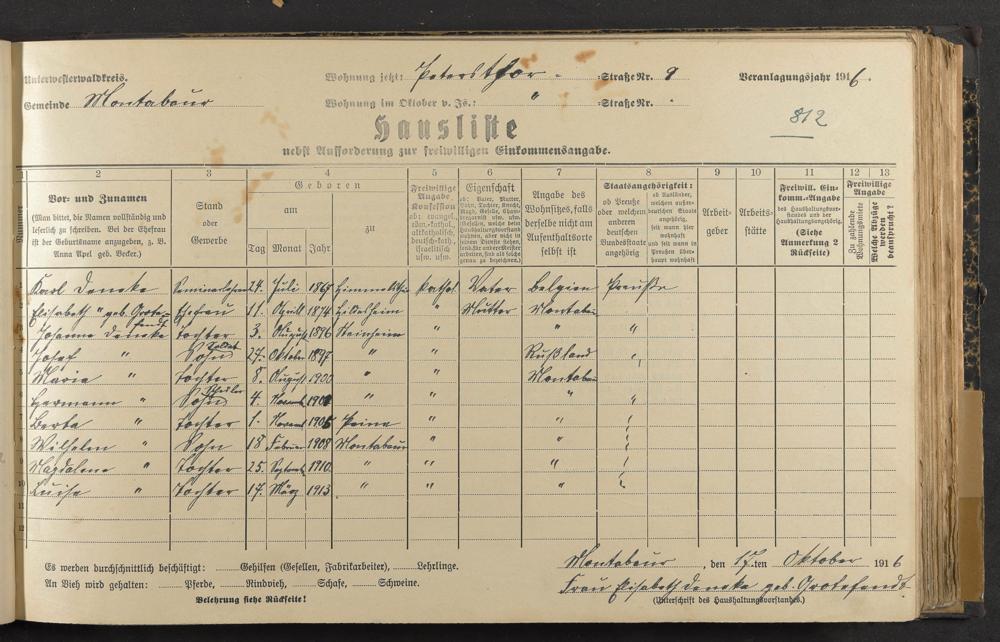 Unterwesterwaldkreis. Wohnung jetzt: Petersthor - Straße Nr. 9 Veranlagungsjahr 1916.
Gemeinde Montabaur Wohnung im Oktober v. Js.: " Straße Nr.
812
Hausliste
nebst Aufforderung zur freiwilligen Einkommensangabe.
1 2 3 4 5 6 7 8 9 10 11 12 13
Nummer
Vor- und Zunamen
(Man bittet, die Namen vollständig und
leserlich zu schreiben. Bei der Ehefrau
ist der Geburtsname anzugeben, z. B.
Anna Apel geb. Becker.)
Stand
oder
Gewerbe
Geboren
am
zu
Tag Monat Jahr
Freiwillige
Angabe
Konfession
ob: evangel.,
röm.-kathol.,
altkatholisch,
deutsch-kath.,
israelitisch
usw. usw.
Eigenschaft
ob: Vater, Mutter,
Sohn, Tochter, Knecht,
Angabe des
Wohnsitzes, falls
derselbe nicht am
Aufenthaltsorte
selbst ist
Staatsangehörigkeit:
ob Preuße
oder welchem
anderen
deutschen
Bundesstaate
angehörig
ob Ausländer,
welchem außer-
deutschen Staate
angehörig,
seit wann hier
wohnhaft
und seit wann in
Preußen über-
haupt wohnhaft
Arbeit-
geber
Arbeits-
stätte
Freiwill. Ein-
komm.-Angabe
des Haushaltungsvor-
standes und der
Haushaltungsangehörig.
(Siehe
Anmerkung 2
Rückseite)
Freiwillige
Angabe
Zu zahlende
Wohnungsmiete
Welche Abzüge
werden
beansprucht?
Karl Deneke Seminarlehrer 24. Juli 1865 Kathol Vater Belgien Preuße
Elisabeth " geb. Grote- Ehefrau 11. April 1874 " Mutter Montabaur
fendt
Johanna Deneke Tochter 3. August 1896 Steinheim " " "
Soldat
Josef " Sohn 27. Oktober 1897 " " Rußland "
Maria " Tochter 8. August 1900 " " Montabaur
Schüler
Hermann " Sohn 4. Novemb. " " " "
Berta " Tochter 1. Novemb. 1905 Peine " " "
Wilhelm " Sohn 18 Februar 1908 Montabaur " " "
Magdalene " Tochter 25. Septemb. 1910. " " " "
10 Luise " Tochter 17. März 1913 " " " "
11
12
Es werden durchschnittlich beschäftigt: Gehilfen (Gesellen, Fabrikarbeiter), Lehrlinge.
An Vieh wird gehalten: Pferde, Rindvieh, Schafe, Schweine.
Belehrung siehe Rückseite!
Montabaur, den 17.ten Oktober 1916
Frau Elisabeth Deneke geb. Grotefendt.
(Unterschrift des Haushaltungsvorstandes.)